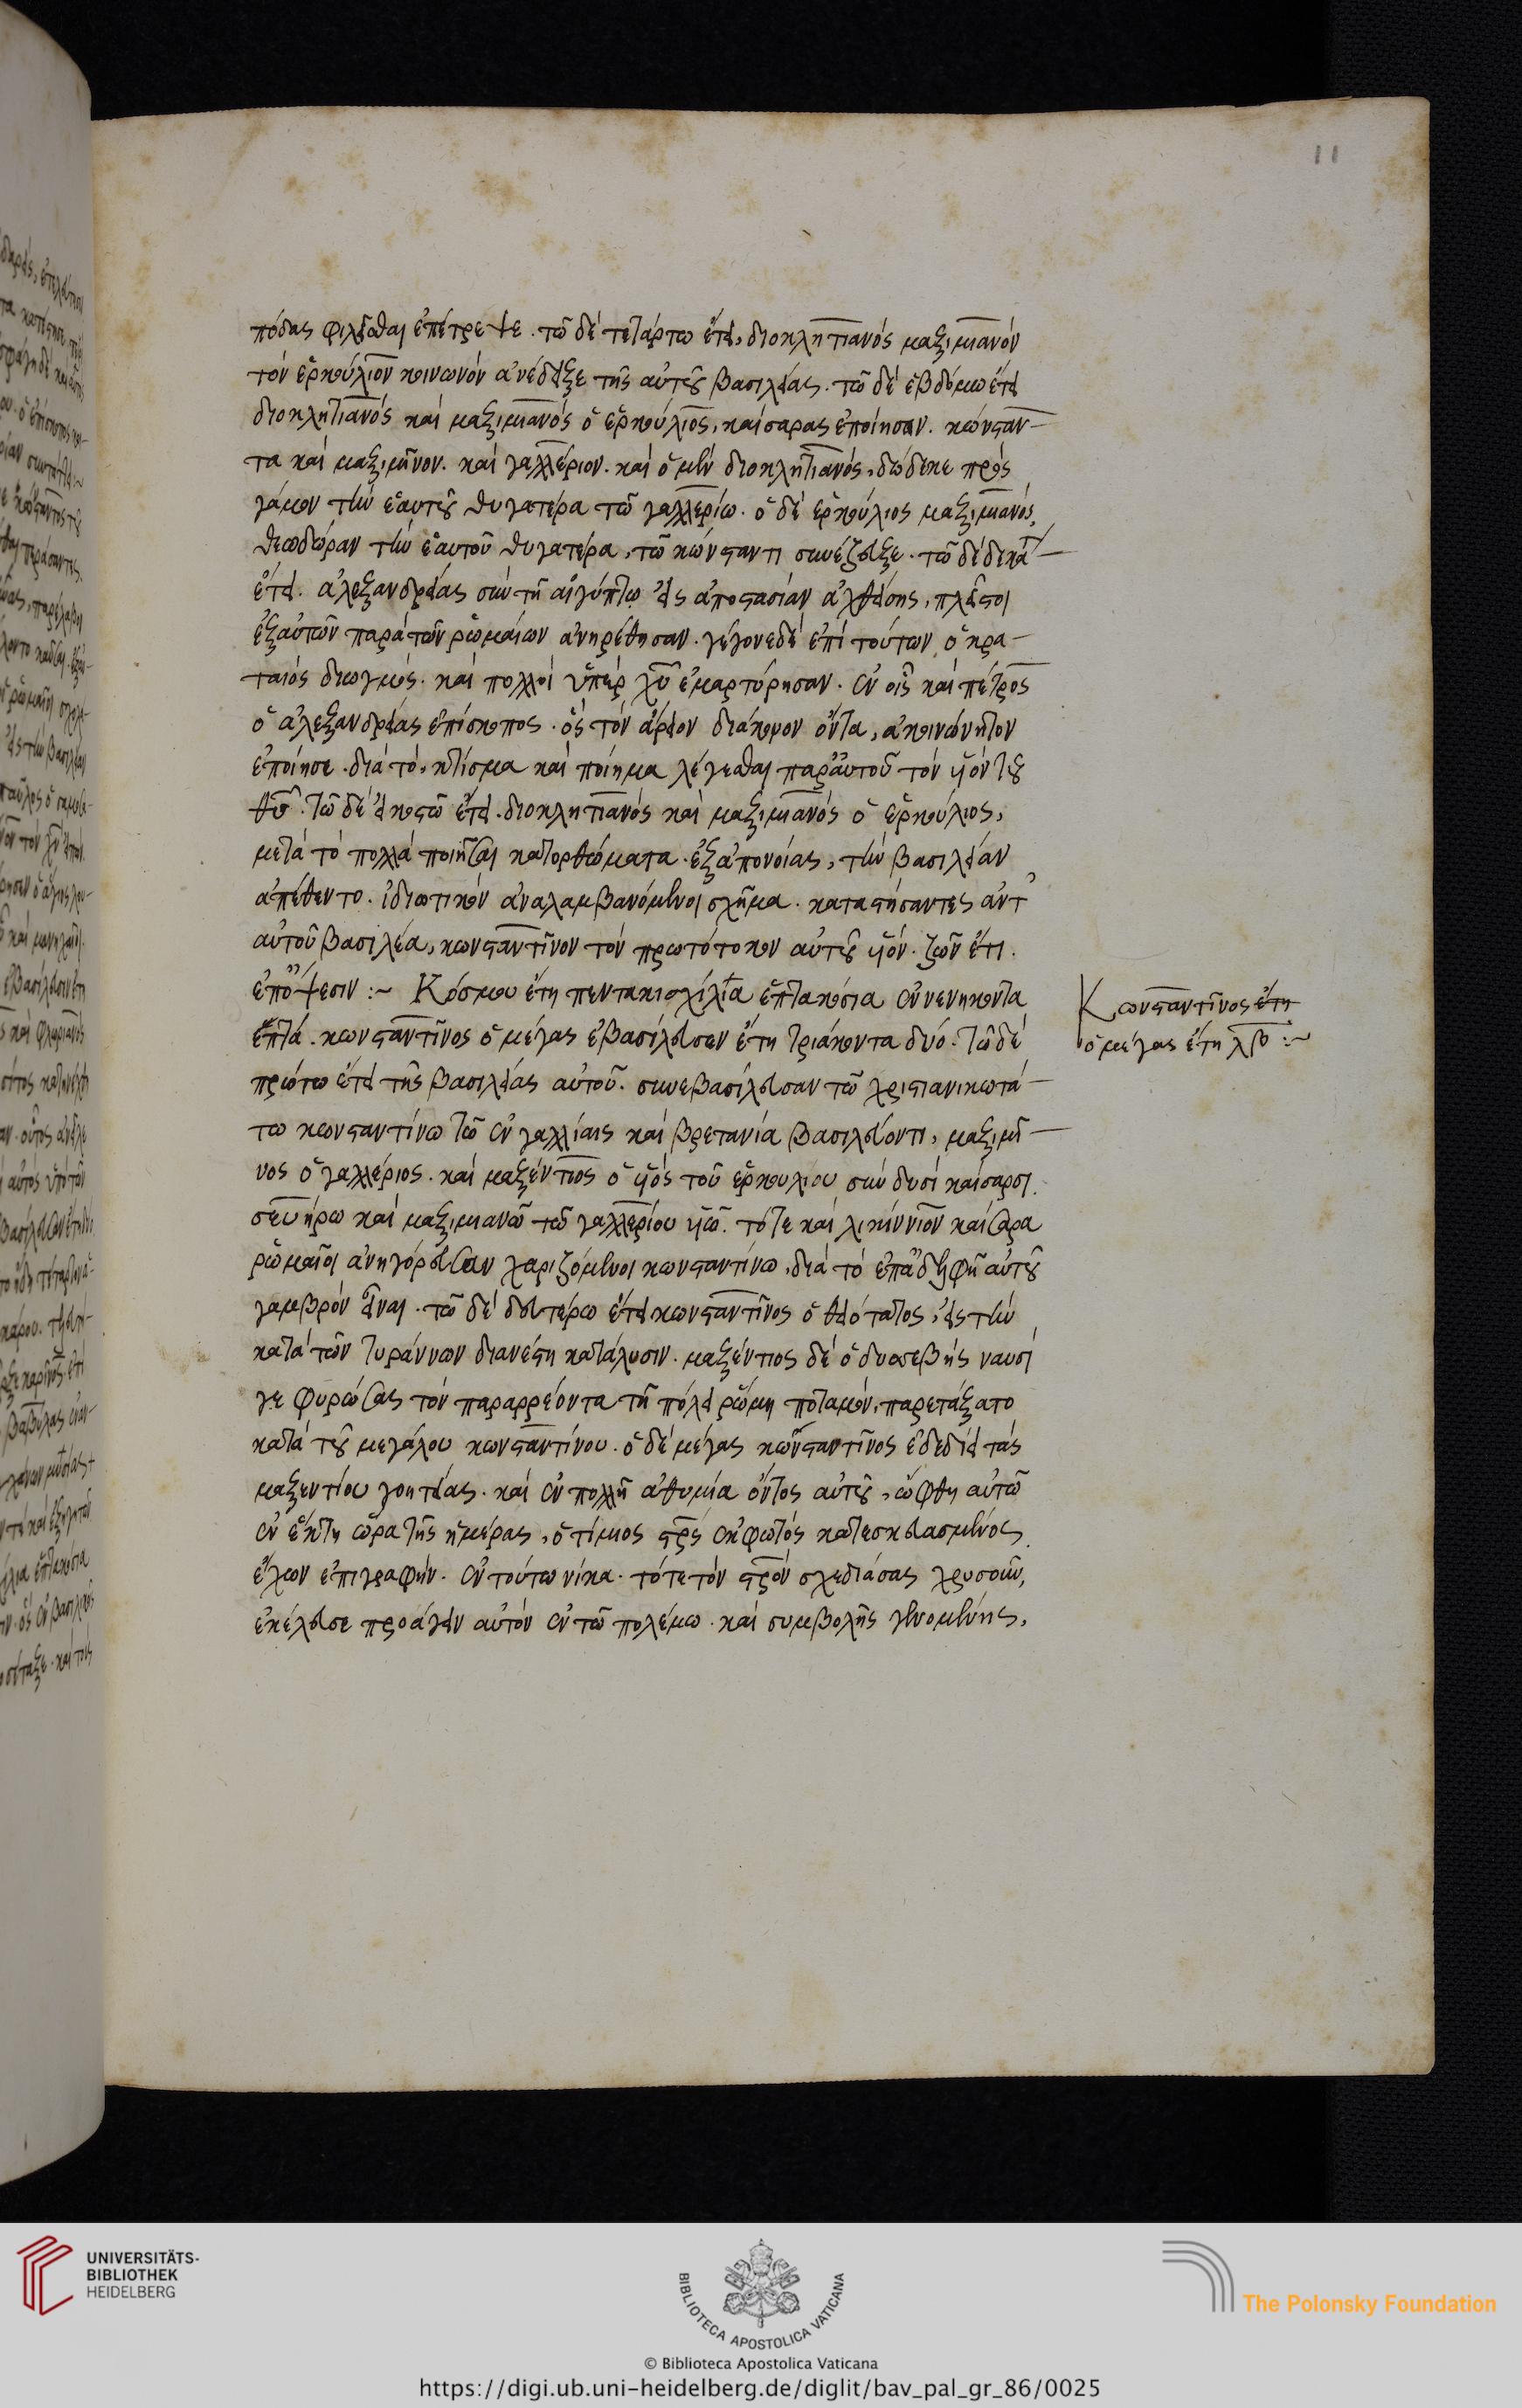 11
πόδας φιλεῖσθαι ἐπέτρεψε. τῶ δὲ τετάρτω ἔτει, διοκλητιανός μαξιμιανόν
τόν ἑρκούλιον κοινωνόν ἀνέδειξε τῆς αὐτοῦ βασιλείας. τῶ δέ ἑβδόμω ἔτει
διοκλητιανός καί μαξιμιανός ὁ ἑρκούλιος, καίσαρας ἐποίησαν. κώνσταν
τα καί μαξιμῖνον. καί γαλλέριον. καί ὁ μέν διοκλητιανός, δέδωκε πρός
γάμον τήν ἑαυτοῦ θυγατέρα τῶ γαλλερίω. ὁ δέ ἑρκούλιος μαξιμιανός,
θεοδώραν τήν ἑαυτοῦ θυγατέρα, τῶ κώνσταντι συνέζευξε. τῶ δέ δεκάτ
ἔτει. ἀλεξανδρείας σύν τῆ αἰγύπτω εἰς ἀποστασίαν ἐλθούσης, πλεῖστοι
ἐξ αὐτῶν παρά τῶν ῥωμαίων ἀνηρέθησαν. γέγονε δέ ἐπί τούτων ὁ κρα
ταιός διωγμός. καί πολλοί ὑπέρ χυ ἐμαρτύρησαν. ἐν οἷς καί πέτρος
ὁ ἀλεξανδρείας ἐπίσκοπος. ὅς τόν ἄρειον διάκονον ὄντα, ἀκοινώνητον
ἐποίησε. διά τό, κτίσμα καί ποίημα λέγεσθαι παρ' αὐτοῦ τόν υἱόν τοῦ
θυ. τῶ δέ εἰκοστῶ ἔτει. διοκλητιανός καί μαξιμιανός ὁ ἑρκούλιος,
μετά τό πολλά ποιῆσαι κατορθώματα. ἐξ ἀπονοίας, τήν βασιλείαν
ἀπέθεντο. ἰδιωτικόν ἀναλαμβανόμενοι σχῆμα. καταστήσαντες ἀντ'
αὐτοῦ βασιλέα, κωνσταντῖνον τόν πρωτότοκον αὐτοῦ υἱόν. ζῶν ἔτι.
ἐπ' ὄψεσιν :~ Κόσμου ἔτη πεντακισχίλια ἑπτακόσια ἐνενηκοντα
ἑπτά. κωνσταντῖνος ὁ μέγας ἐβασίλευσεν ἔτη τριάκοντα δύο. τῶ δέ
πρώτω ἔτει τῆς βασιλείας αὐτοῦ. συνεβασίλευσαν τῶ χριστιανικωτά
τω κωνσταντίνω τῶ ἐν γαλλίαις καί βρετανία βασιλεύοντι, μαξιμῖ
νος ὁ γαλλέριος. καί μαξέντιος ὁ υἱός τοῦ ἑρκουλίου σύν δυσί καίσαρσι.
σευήρω καί μαξιμιανῶ τῶ γαλλερίου υἱῶ. τότε καί λικίννιον καίσαρα
ῥωμαῖοι ἀνηγόρευσαν χαριζόμενοι κωνσταντίνω, διά τό ἐπ' ἀδελφῆ αὐτοῦ
γαμβρόν εἶναι. τῶ δέ δευτέρω ἔτει κωνσταντῖνος ὁ θειότατος, εἰς τήν
κατά τῶν τυράννων διανέστη κατάλυσιν. μαξέντιος δέ ὁ δυσσεβής ναυσί
γεφυρώσας τόν παραρρέοντα τῆ πόλει ῥώμη ποταμόν, παρετάξατο
κατά τοῦ μεγάλου κωνσταντίνου. ὁ δέ μέγας κωνσταντῖνος ἐδεδίει τάς
μαξεντίου γοητείας. καί ἐν πολλῆ ἀθυμία ὄντος αὐτοῦ, ὤφθη αὐτῶ
ἐν ἕκτη ὥρα τῆς ἡμέρας, ὁ τίμιος στρς ἐκ φωτός κατεσκευασμένος.
ἔχων ἐπιγραφήν. ἐν τούτω νίκα. τότε τόν στρον σχεδιάσας χρυσοῦν,
ἐκέλευσε προάγειν αὐτόν ἐν τῶ πολέμω. καί συμβολῆς γενομένης,
Κωνσταντῖνος ἔτη
ὁ μέγας ἔτη λβ :~
UNIVERSITÄTS-
BIBLIOTHEK
HEIDELBERG
BIBLIOTECA APOSTOLICA VATICANA
© Biblioteca Apostolica Vaticana
The Polonsky Foundation
https://digi.ub.uni-heidelberg.de/diglit/bav_pal_gr_86/0025